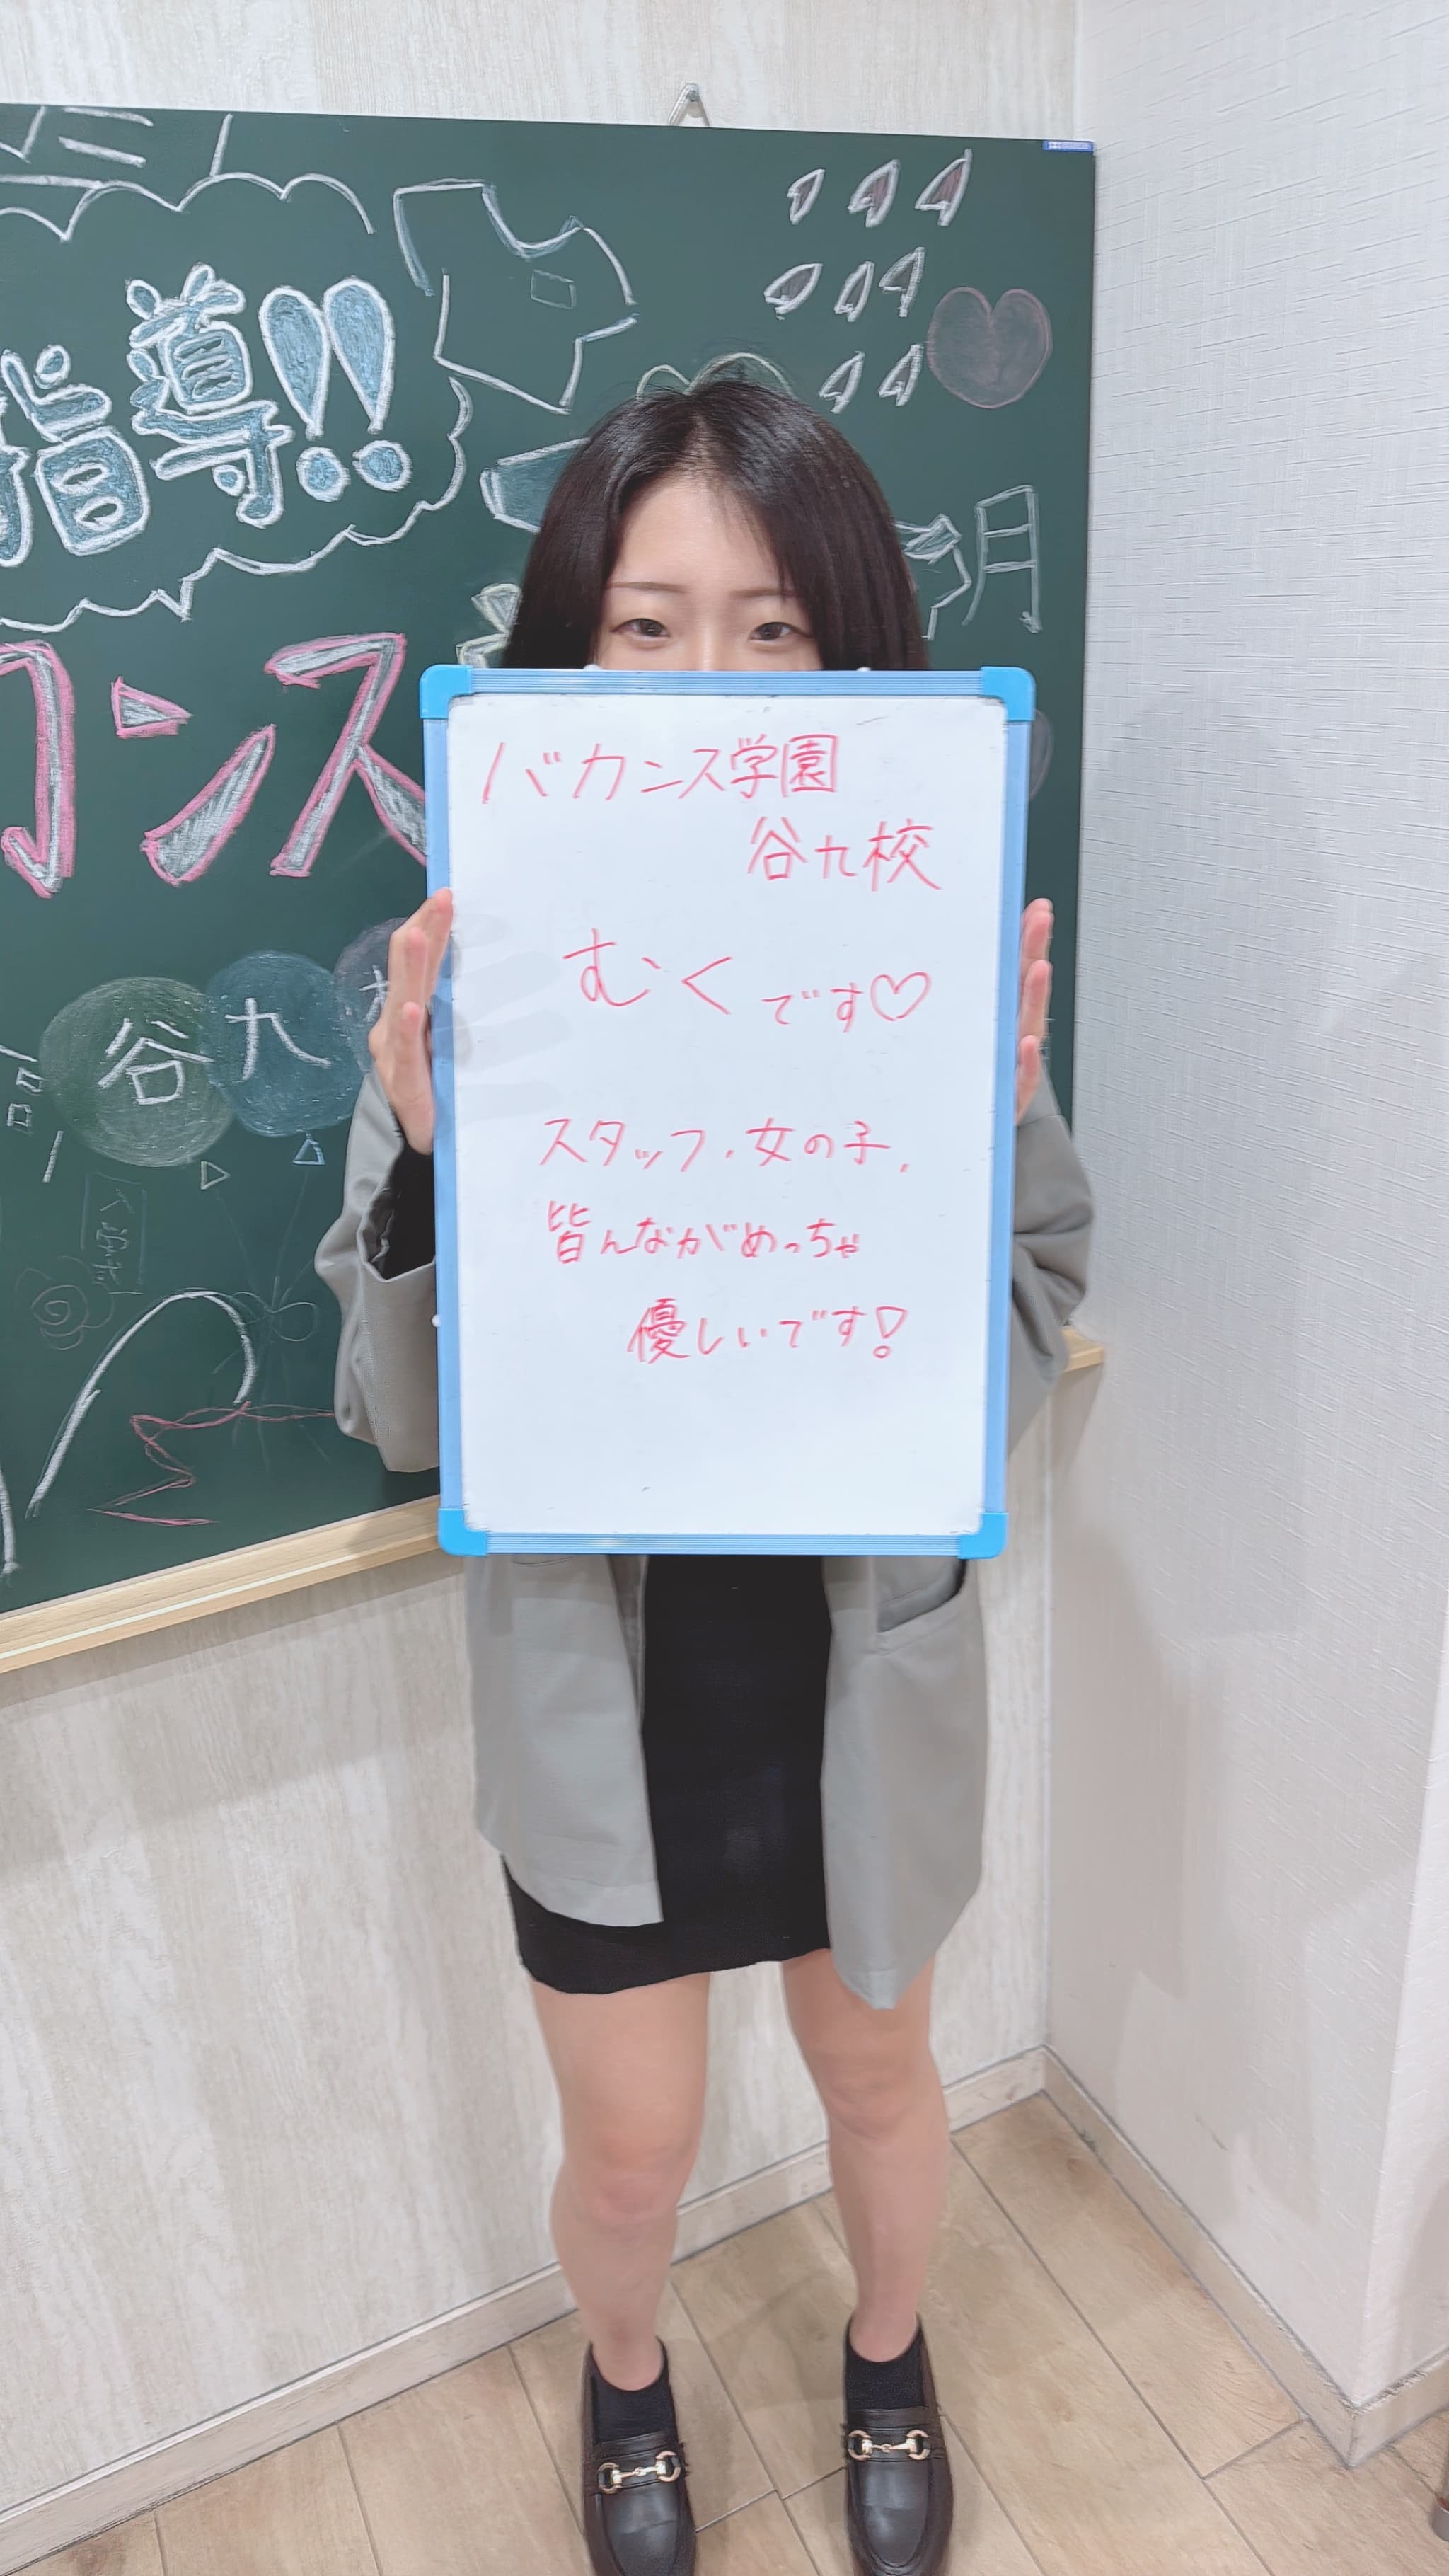 指導!!
ンス
谷九
月
バカンス学園
谷九校
むくです♡
スタッフ、女の子、
皆んながめっちゃ
優しいです!